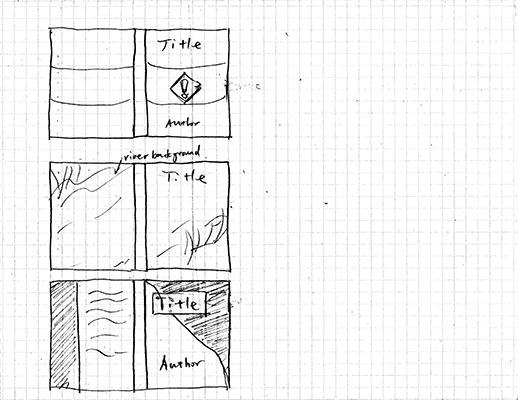 Title
!
Author
river background
Title
Title
Author